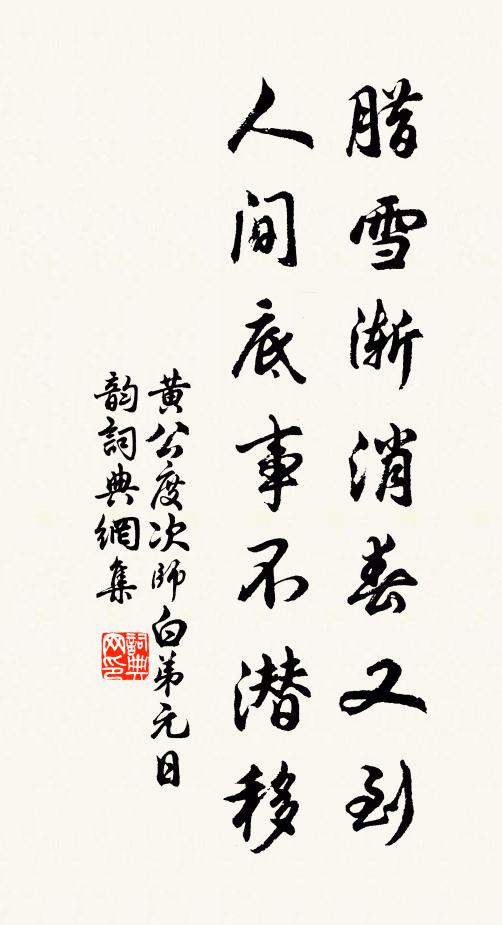 腊雪渐消春又到
人间底事不潜移
黄公度次师白弟元日
韵詞典網集
詞典网印